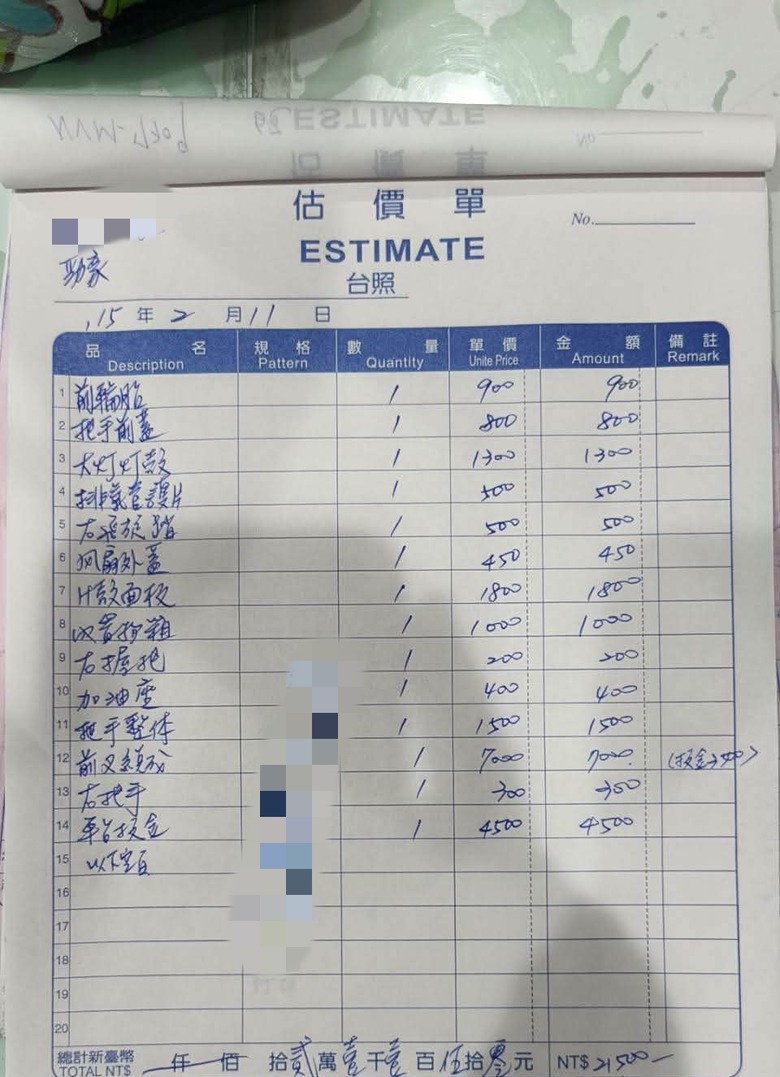 估價單
ESTIMATE
No.
勁豪
台照
115 年 2 月 11 日
品名 規格 數量 單價 金額 備註
Description Pattern Quantity Unite Price Amount Remark
1 前輪胎 1 900 900
2 把手前蓋 1 800 800
3 大灯灯殼 1 1300 1300
4 排氣管護片 1 500 500
5 右飛旋踏 1 500 500
6 风扇外蓋 1 450 450
7 H殼面板 1 1800 1800
8 內置物箱 1 1000 1000
9 右握把 1 200 200
10 加油座 1 400 400
11 把手整体 1 1500 1500
12 前叉總成 1 7000 7000
13 右把手 1 300 300
14 車台扳金 1 4500 4500
15 以下空白
16
17
18
19
20
總計新臺幣 仟 佰 拾貳萬壹千壹百伍拾零元 NT$ 21500
TOTAL NT$